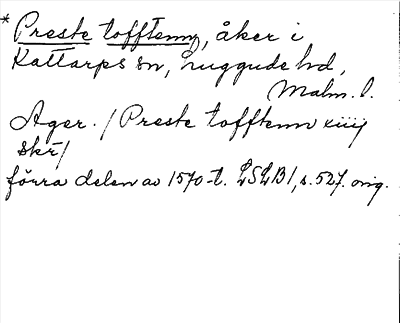 * Preste tofftenn, åker i
Kattarps sn, Luggude hd,
Malm. l.
Ager. / Preste tofftenn xiiij
skr /
förra delen av 1570-t. LSLB1, s. 527. orig.